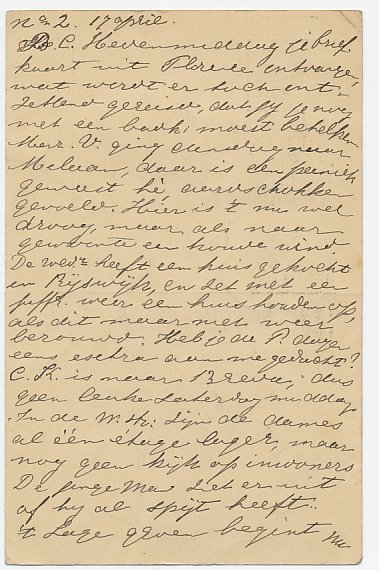 No 2. 17 april.
B. C. Hedenmiddag je brief-
kaart uit Florence ontvangen,
wat wordt er toch ont-
zettend gereisd, dat jij je nog
met een bankj moest behelpen
Mevr. V. ging dinsdag naar
Melaan, daar is een paniek
geweest hè aardschokken
gevoeld. Hier is 't nu wel
droog, maar als naar
gewoonte een koude wind.
De wedr heeft een huis gekocht
in Rijswijk, en zet met een
juffr. weer een huishouden op
als dit maar niet weer
berouwd. Heb je de P. dagen
eens extra aan me gedacht?
C. K. is naar Breda, dus
geen leuke Zaterdagmiddag
In de W. Str. zijn de dames
al één étage lager, maar
nog geen kijk op inwoners
De jonge Man ziet er uit
of hij al spijt heeft.
't Lage geven begint nu